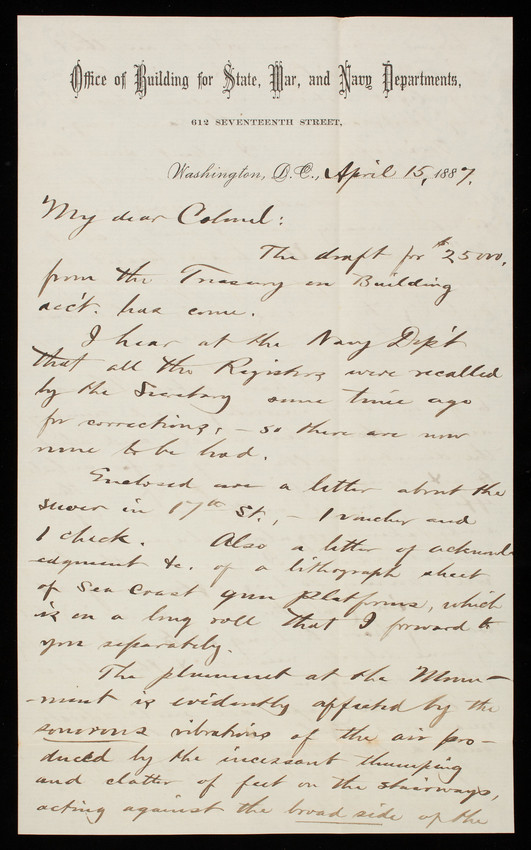 Office of Building for State, War, and Navy Departments,
612 SEVENTEENTH STREET,
Washington, D.C., April 15, 1887.
My dear Colonel:
The draft for $25000,
from the Treasury on Building
acc't. has come.
I hear at the Navy Dep't
that all the Registers were recalled
by the Secretary some time ago
for corrections, - so there are now
none to be had.
Enclosed are a letter about the
sewer in 17th St., - 1 voucher and
1 check. Also a letter of acknowl-
edgment &c. of a lithograph sheet
of Sea Coast gun platforms, which
is on a long roll that I forward to
you separately.
The plummet at the Monu-
-ment is evidently affected by the
sonorous vibrations of the air pro-
duced by the incessant thumping
and clatter of feet on the stairways,
acting against the broad side of the